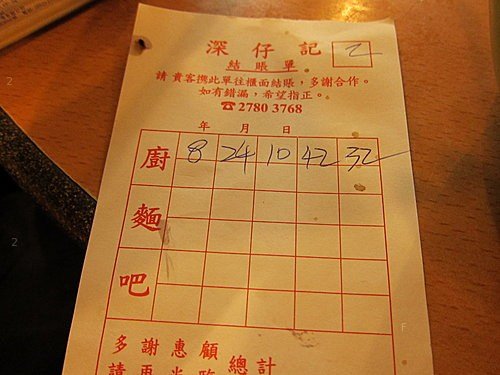 深仔記 2
結賬單
請貴客攜此單往櫃面結賬，多謝合作。
如有錯漏，希望指正。
☎2780 3768
年 月 日
廚 8 24 10 42 32
麵
吧
多謝惠顧
總計